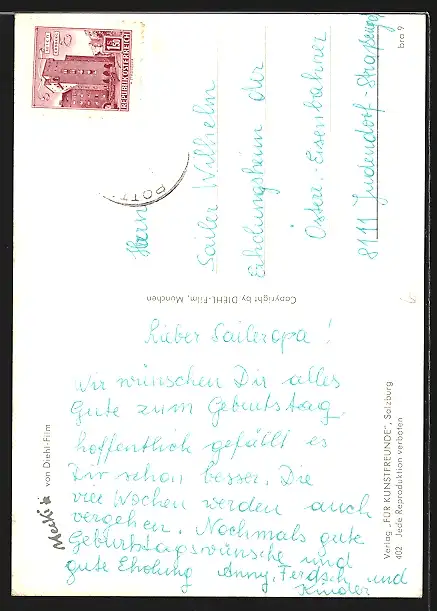 REPUBLIK ÖSTERREICH
1.50
POTT
Herrn
Sailer Wilhelm
Erholungsheim der
Österr. Eisenbahner
8111 Judendorf-Straßengel
bra 9
Copyright by DIEHL-Film, München
Lieber Saileropa!
Wir wünschen Dir alles
Gute zum Geburtstag,
hoffentlich gefällt es
Dir schon besser. Die
vier Wochen werden auch
vergehen. Nochmals gute
Geburtstagswünsche und
gute Erholung Anny, Ferdsch. und
Kinder
Mecki
von Diehl-Film
Verlag „FÜR KUNSTFREUNDE", Salzburg
402 Jede Reproduktion verboten